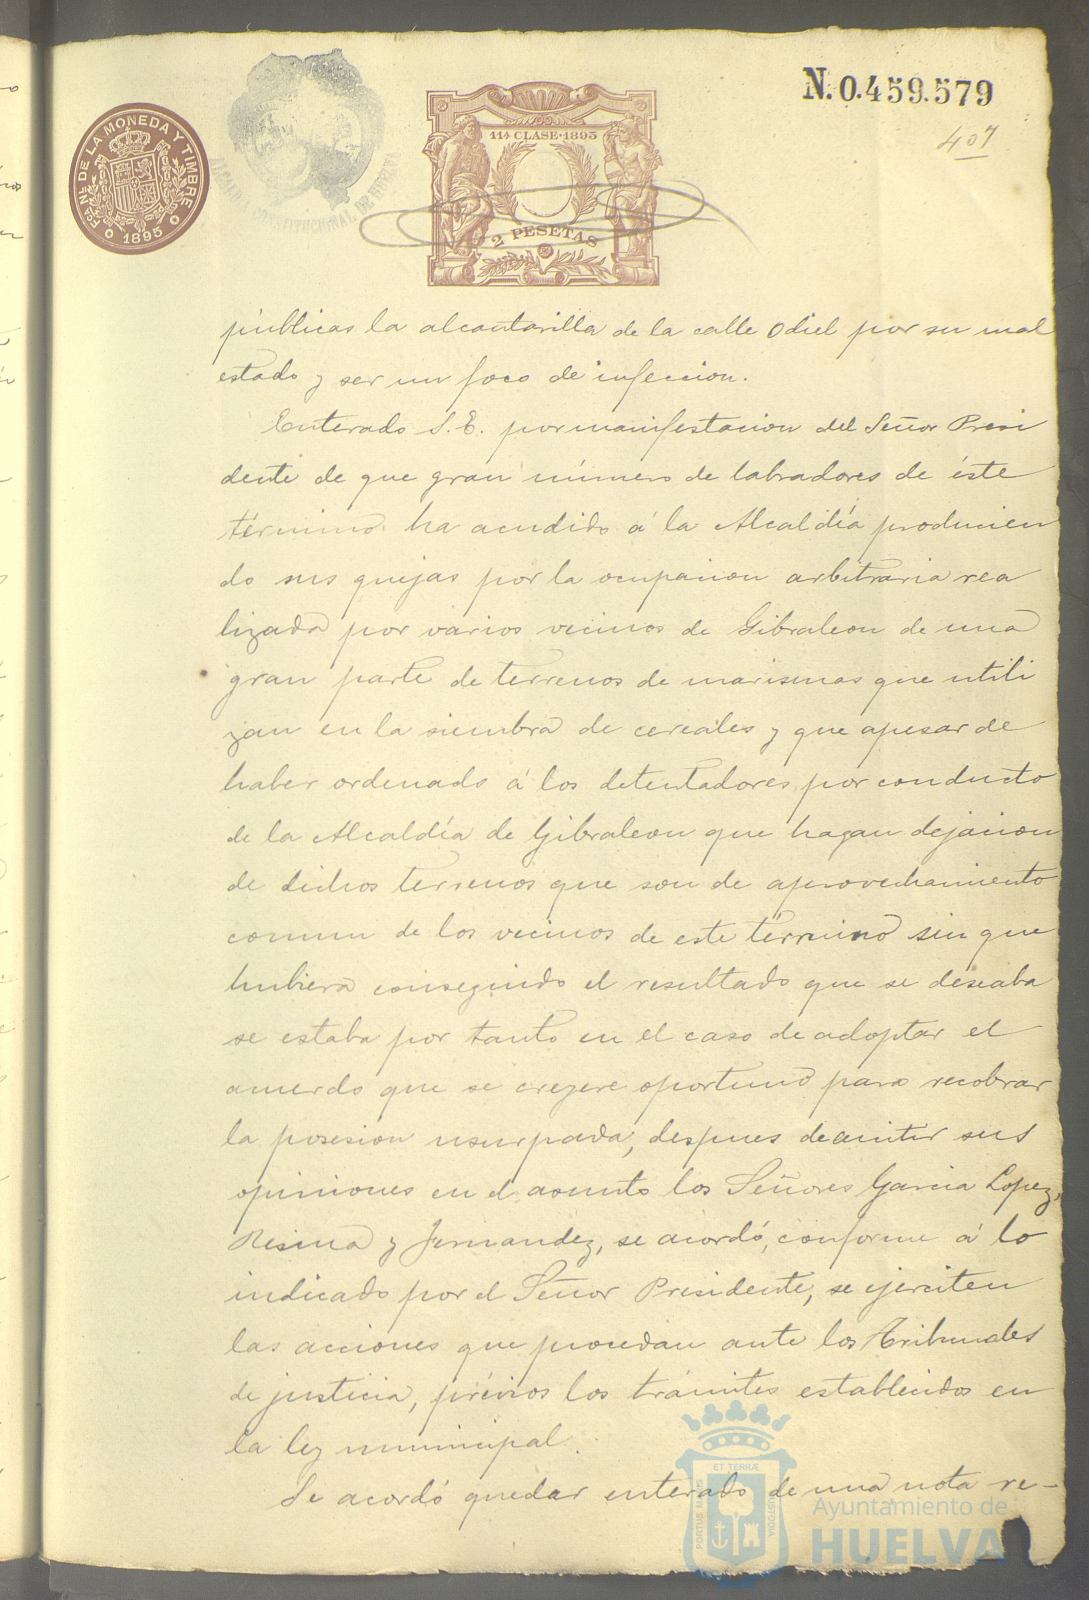 N. 0.459.579
407
FCA. NL. DE LA MONEDA Y TIMBRE
1895
ALCALDIA CONSTITUCIONAL DE HUELVA
11ª CLASE·1895
2 PESETAS
públicas la alcantarilla de la calle Odiel por su mal
estado y ser un foco de infeccion.
Enterado S.E. por manifestacion del Señor Presi
dente de que gran número de labradores de éste
término ha acudido á la Alcaldía producien
do sus quejas por la ocupacion arbitraria rea
lizada por varios vecinos de Gibraleon de una
gran parte de terrenos de marismas que utili
zan en la siembra de cereales y que apesar de
haber ordenado á los detentadores por conducto
de la Alcaldía de Gibraleon que hagan dejacion
de dichos terrenos que son de aprovechamiento
comun de los vecinos de este término sin que
hubiera conseguido el resultado que se deseaba
se estaba por tanto en el caso de adoptar el
acuerdo que se creyere oportuno para recobrar
la posesion usurpada, despues de emitir sus
opiniones en el asunto los Señores Garcia Lopez,
Resina y Fernandez, se acordó, conforme á lo
indicado por el Señor Presidente, se ejerciten
las acciones que procedan ante los Tribunales
de justicia, prévios los trámites establecidos en
la ley municipal.
Se acordó quedar enterado de una nota re-
PORTUS MARIS ET TERRÆ CUSTODIA
Ayuntamiento de
HUELVA